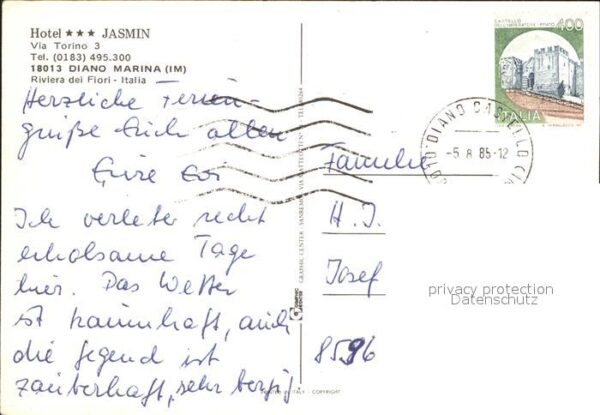 Hotel ★★★ JASMIN
Via Torino 3
Tel. (0183) 495.300
18013 DIANO MARINA (IM)
Riviera dei Fiori - Italia
Herzliche Ferien-
grüße Euch allen
Eure
Ich verlebe recht
erholsame Tage
hier. Das Wetter
ist traumhaft, auch
die Gegend ist
zauberhaft, sehr bergig.
CASTELLO
DELL'IMPERATORE - PRATO
400
ITALIA
DIANO CASTELLO
-5.8.85-12
Familie
H. J.
Josef
8596
privacy protection
Datenschutz
GRAPHIC CENTER - SANREMO - VIA
PRINTED IN ITALY - COPYRIGHT